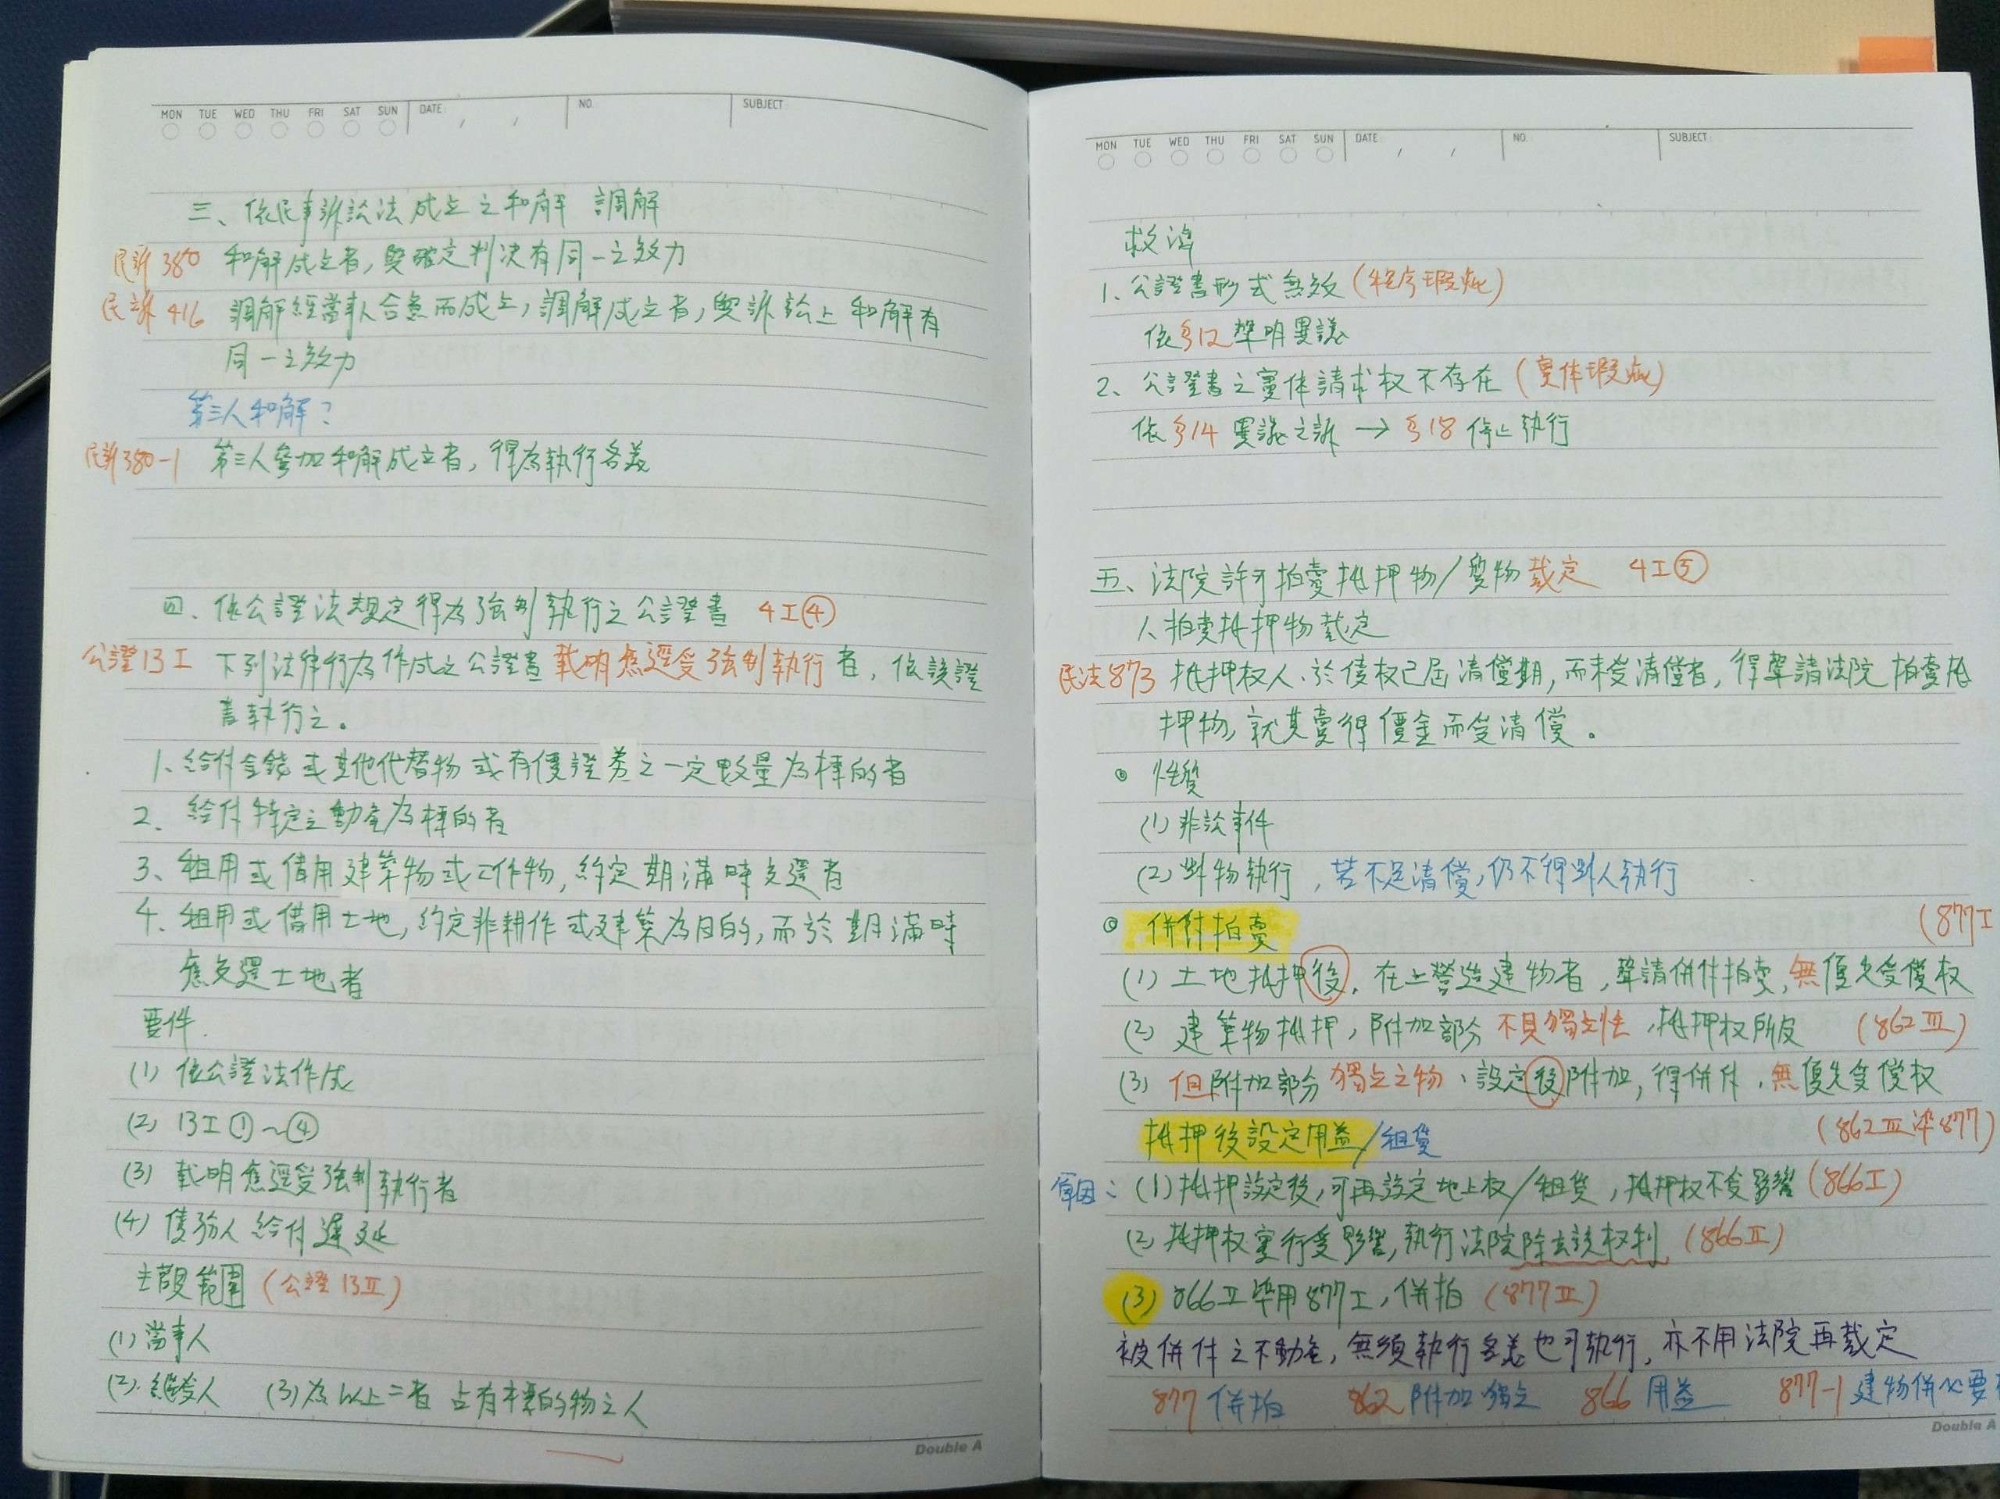 MON TUE WED THU FRI SAT SUN DATE: / / NO. SUBJECT:
三、依民事訴訟法成立之和解 調解
民訴380 和解成立者,與確定判決有同一之效力
民訴416 調解經當事人合意而成立,調解成立者,與訴訟上和解有
同一之效力
第三人和解?
民訴380-1 第三人參加和解成立者,得為執行名義
四、依公證法規定得為強制執行之公證書 4I④
公證13I 下列法律行為作成之公證書載明應逕受強制執行者,依該證
書執行之。
1、給付金錢或其他代替物或有價證券之一定數量為標的者
2、給付特定之動產為標的者
3、租用或借用建築物或工作物,約定期滿時交還者
4、租用或借用土地,約定非耕作或建築為目的,而於期滿時
應交還土地者
要件
(1) 依公證法作成
(2) 13I①~④
(3) 載明應逕受強制執行者
(4) 債務人給付遲延
主觀範圍(公證13II)
(1) 當事人
(2) 繼受人 (3) 為以上二者占有標的物之人
Double A
MON TUE WED THU FRI SAT SUN DATE: / / NO. SUBJECT:
救濟
1、公證書形式無效(程序瑕疵)
依§12聲明異議
2、公證書之實体請求权不存在(實体瑕疵)
依§14異議之訴→§18停止執行
五、法院許可拍賣抵押物/質物裁定 4I⑤
1、拍賣抵押物裁定
民法873 抵押权人、於債权已屆清償期,而未受清償者,得聲請法院拍賣抵
押物,就其賣得價金而受清償。
◎ 性質
(1) 非訟事件
(2) 對物執行,若不足清償,仍不得對人執行
◎ 併付拍賣 (877I
(1) 土地抵押後,在上營造建物者,聲請併付拍賣,無優先受償权
(2) 建築物抵押,附加部分不具獨立性,抵押权所及 (862III)
(3) 但附加部分獨立之物、設定後附加,得併付,無優先受償权
抵押後設定用益/租賃 (862III準877)
原因: (1) 抵押設定後,可再設定地上权/租賃,抵押权不受影響(866I)
(2) 抵押权實行受影響,執行法院除去該权利 (866II)
(3) 866II準用877I,併拍 (877II)
被併付之不動產,無須執行名義也可執行,亦不用法院再裁定
877 併拍 862 附加獨立 866 用益 877-1 建物併必要
Double A